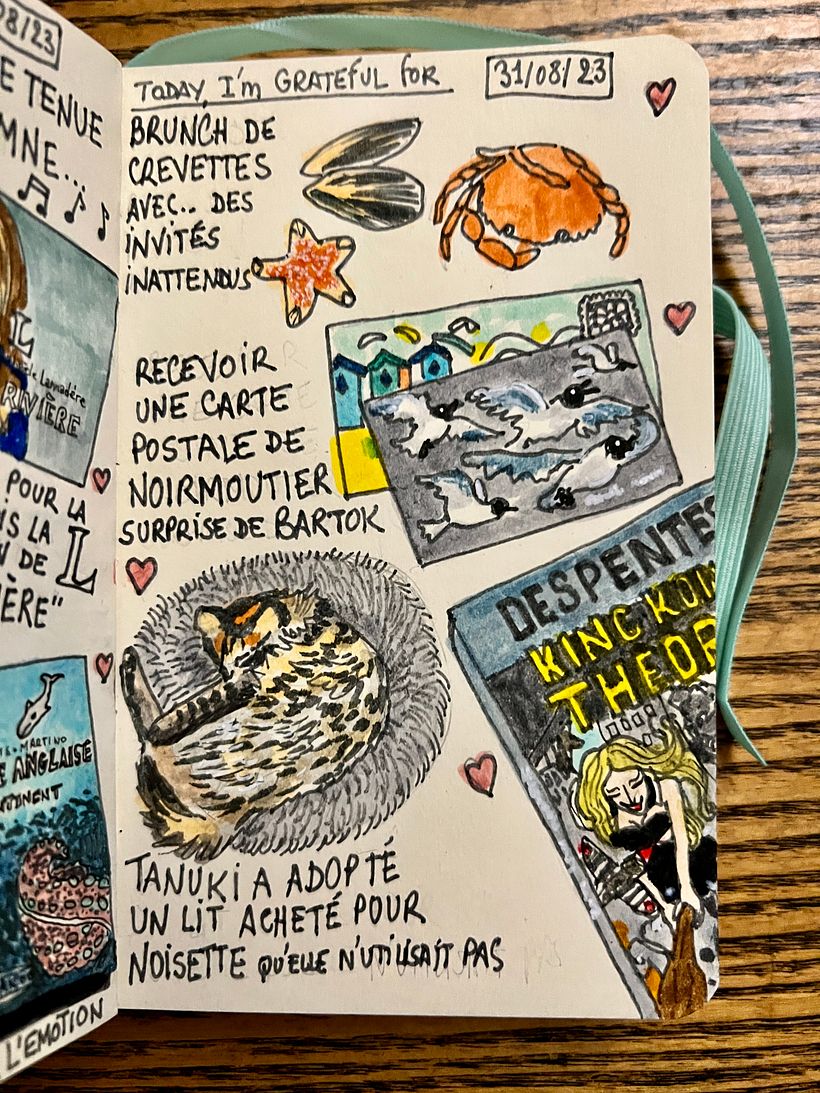 08/23
E TENUE
MNE...
L
Lamadère
RIVIÈRE
POUR LA
NS LA
N DE L
IÈRE"
MARTINO
E ANGLAISE
L'EMOTION
TODAY, I'm GRATEFUL FOR
31/08/23
BRUNCH DE
CREVETTES
AVEC... DES
INVITÉS
INATTENDUS
RECEVOIR
UNE CARTE
POSTALE DE
NOIRMOUTIER
SURPRISE DE BARTOK
DESPENTES
KING KON
THEOR
TANUKI A ADOPTÉ
UN LIT ACHETÉ POUR
NOISETTE QU'ELLE N'UTILISAIT PAS